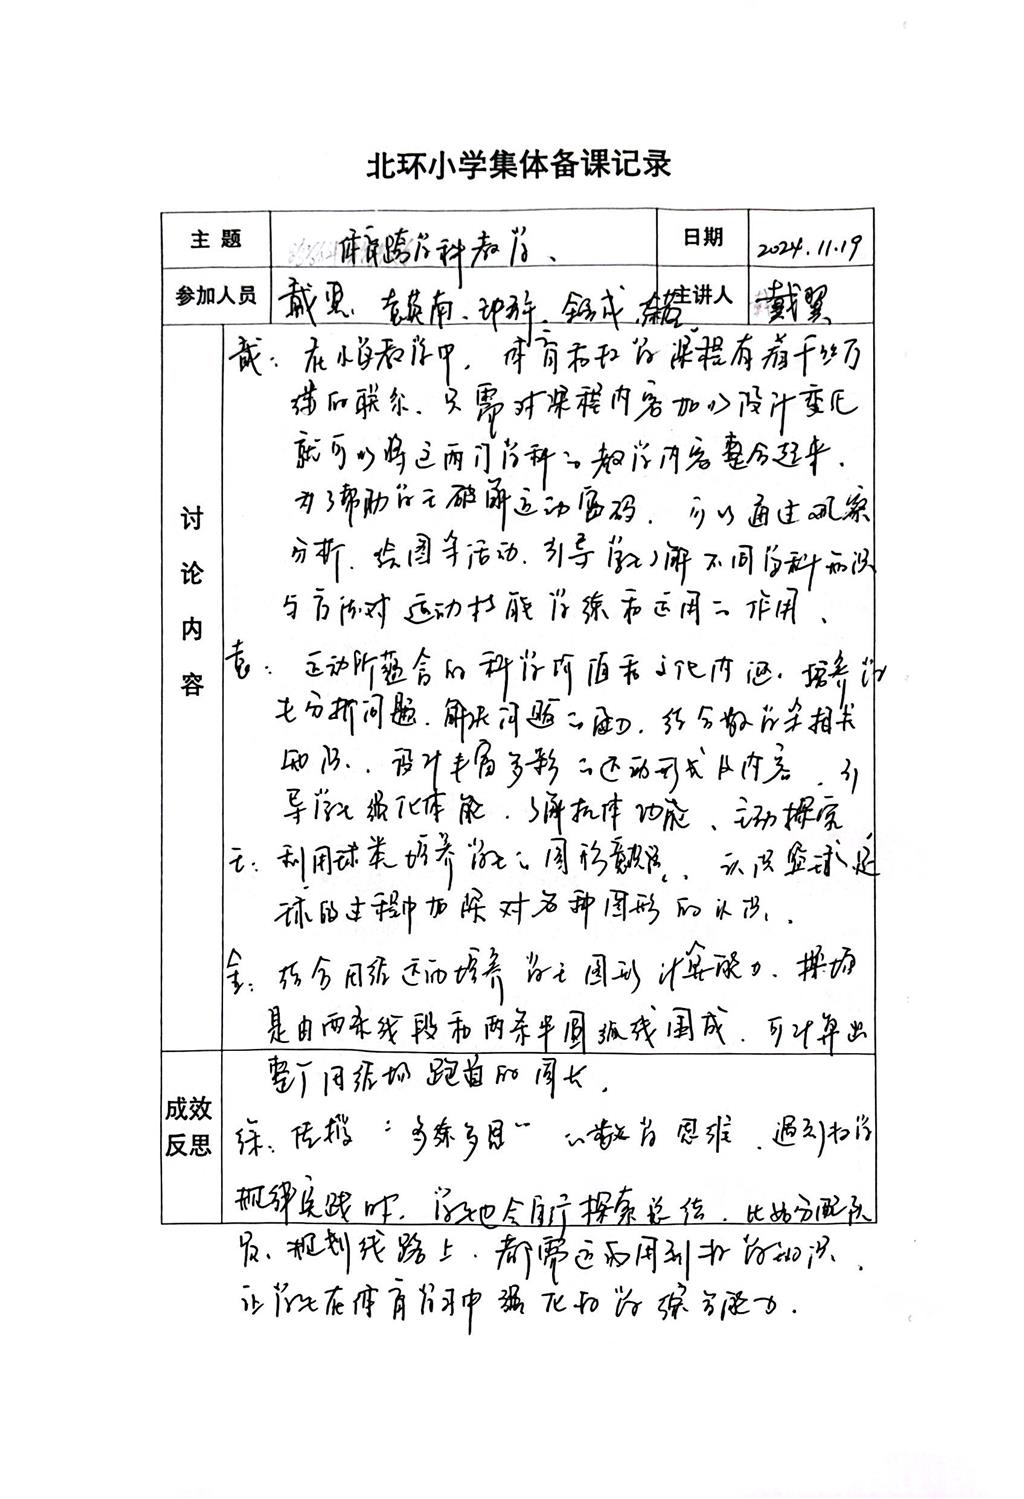 北环小学集体备课记录
主题 体育跨学科教学、 日期 2024.11.19
参加人员 戴翼、袁英南、 主讲人 戴翼
讨论内容
戴：在小学教学中，体育和数学课程有着千丝万
缕的联系、只需对课程内容加以设计变化
就可以将这两门学科的教学内容整合起来．
为了帮助学生破解运动密码．可以通过观察
分析．绘图等活动．引导学生了解不同学科知识
与方法对运动技能学练和运用的作用、
袁：运动所蕴含的科学价值和文化内涵．培养学
生分析问题．解决问题的能力．结合数学等相关
知识、设计丰富多彩的运动形式及内容．引
导学生强化体能．了解机体功能、主动探究
王：利用球类培养学生的图形意识、认识篮球足
球的过程中加深对各种图形的认识、
金：结合田径运动培养学生图形计算能力．操场
是由两条线段和两条半圆弧线围成．可计算出
整个田径场跑道的周长．
成效反思
徐：传授“多练多思”的数学思维．遇到数学
规律实践时．学生也会自行探索总结．比如分配队
员、规划线路上．都需运用到数学知识．
让学生在体育学习中强化数学综合能力．